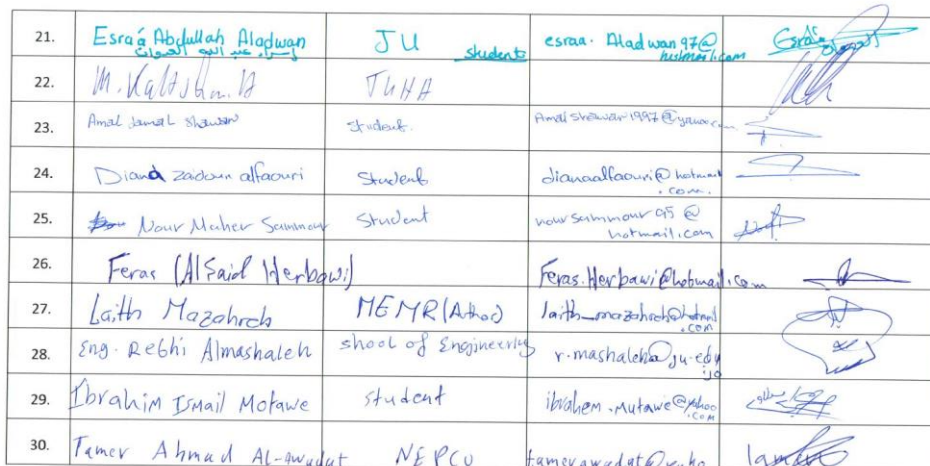 21. Esra'a Abdullah Aladwan JU students esraa.Aladwan97@
إسراء عبد الله العدوان hotmail.com
22. JUHA
23. Amal Jamal Shawar Student. Amalshawar1997@yahoo.com
24. Diana zadoun alfaouri Student dianaalfaouri@hotmail
.com.
25. Nour Maher Sammour Student noursammour95@
hotmail.com
26. Feras (AlSaid Herbawi) Feras.Herbawi@hotmail.com
27. Laith Mazahreh MEMR laith_mazahreh@hotmail
.com
28. Eng. Rebhi Almashaleh shool of Engineering r.mashaleh@ju.edu
.jo
29. Ibrahim Ismail Motawe student ibrahem.mutawe@yahoo
.com
30. Tamer Ahmad Al-awadat NEPCO tamerawadat@yaho